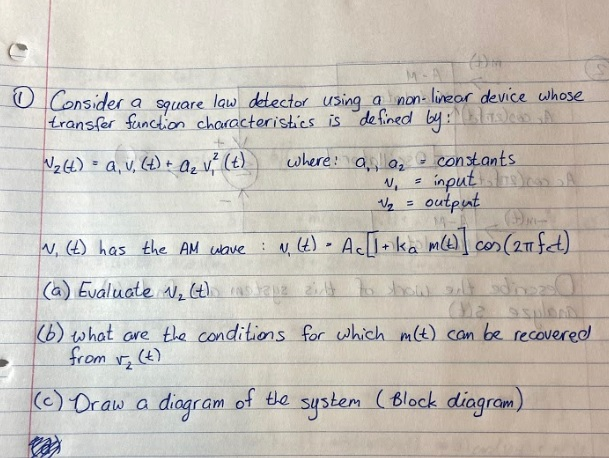 ① Consider a square law detector using a non-linear device whose
transfer function characteristics is defined by:
v₂(t) = a₁v₁(t) + a₂v₁²(t) where: a₁, a₂ = constants
v₁ = input
v₂ = output
v₁(t) has the AM wave : v₁(t) = Ac[1 + ka m(t)] cos(2πfct)
(a) Evaluate v₂(t)
(b) what are the conditions for which m(t) can be recovered
from v₂(t)
(c) Draw a diagram of the system (Block diagram)